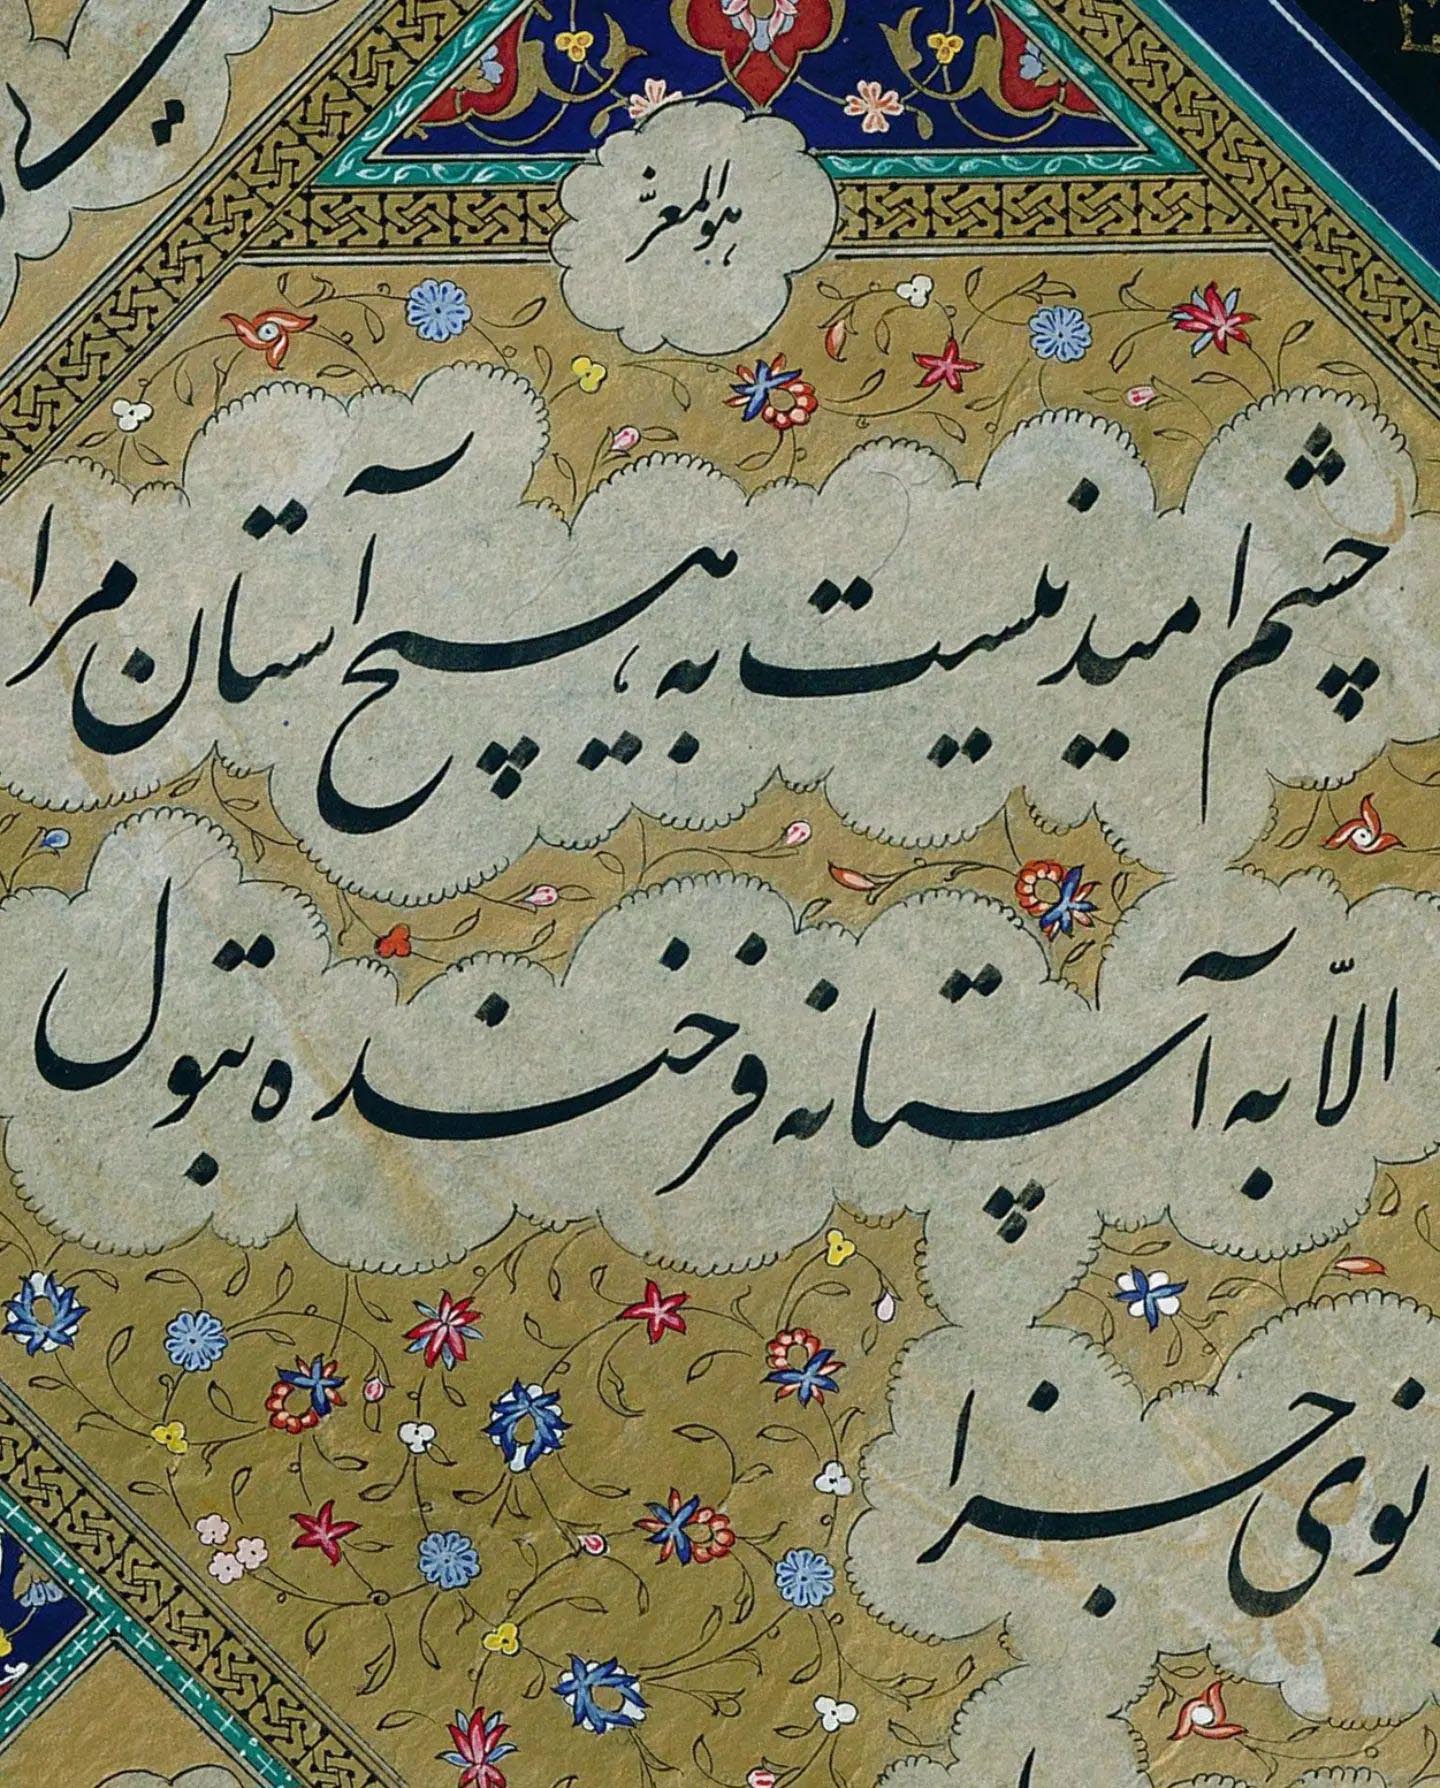 هوالمعزّ
چشم امید نیست به هیچ آستان مرا
الّا به آستانه فرخنده بتول
نوی جزا